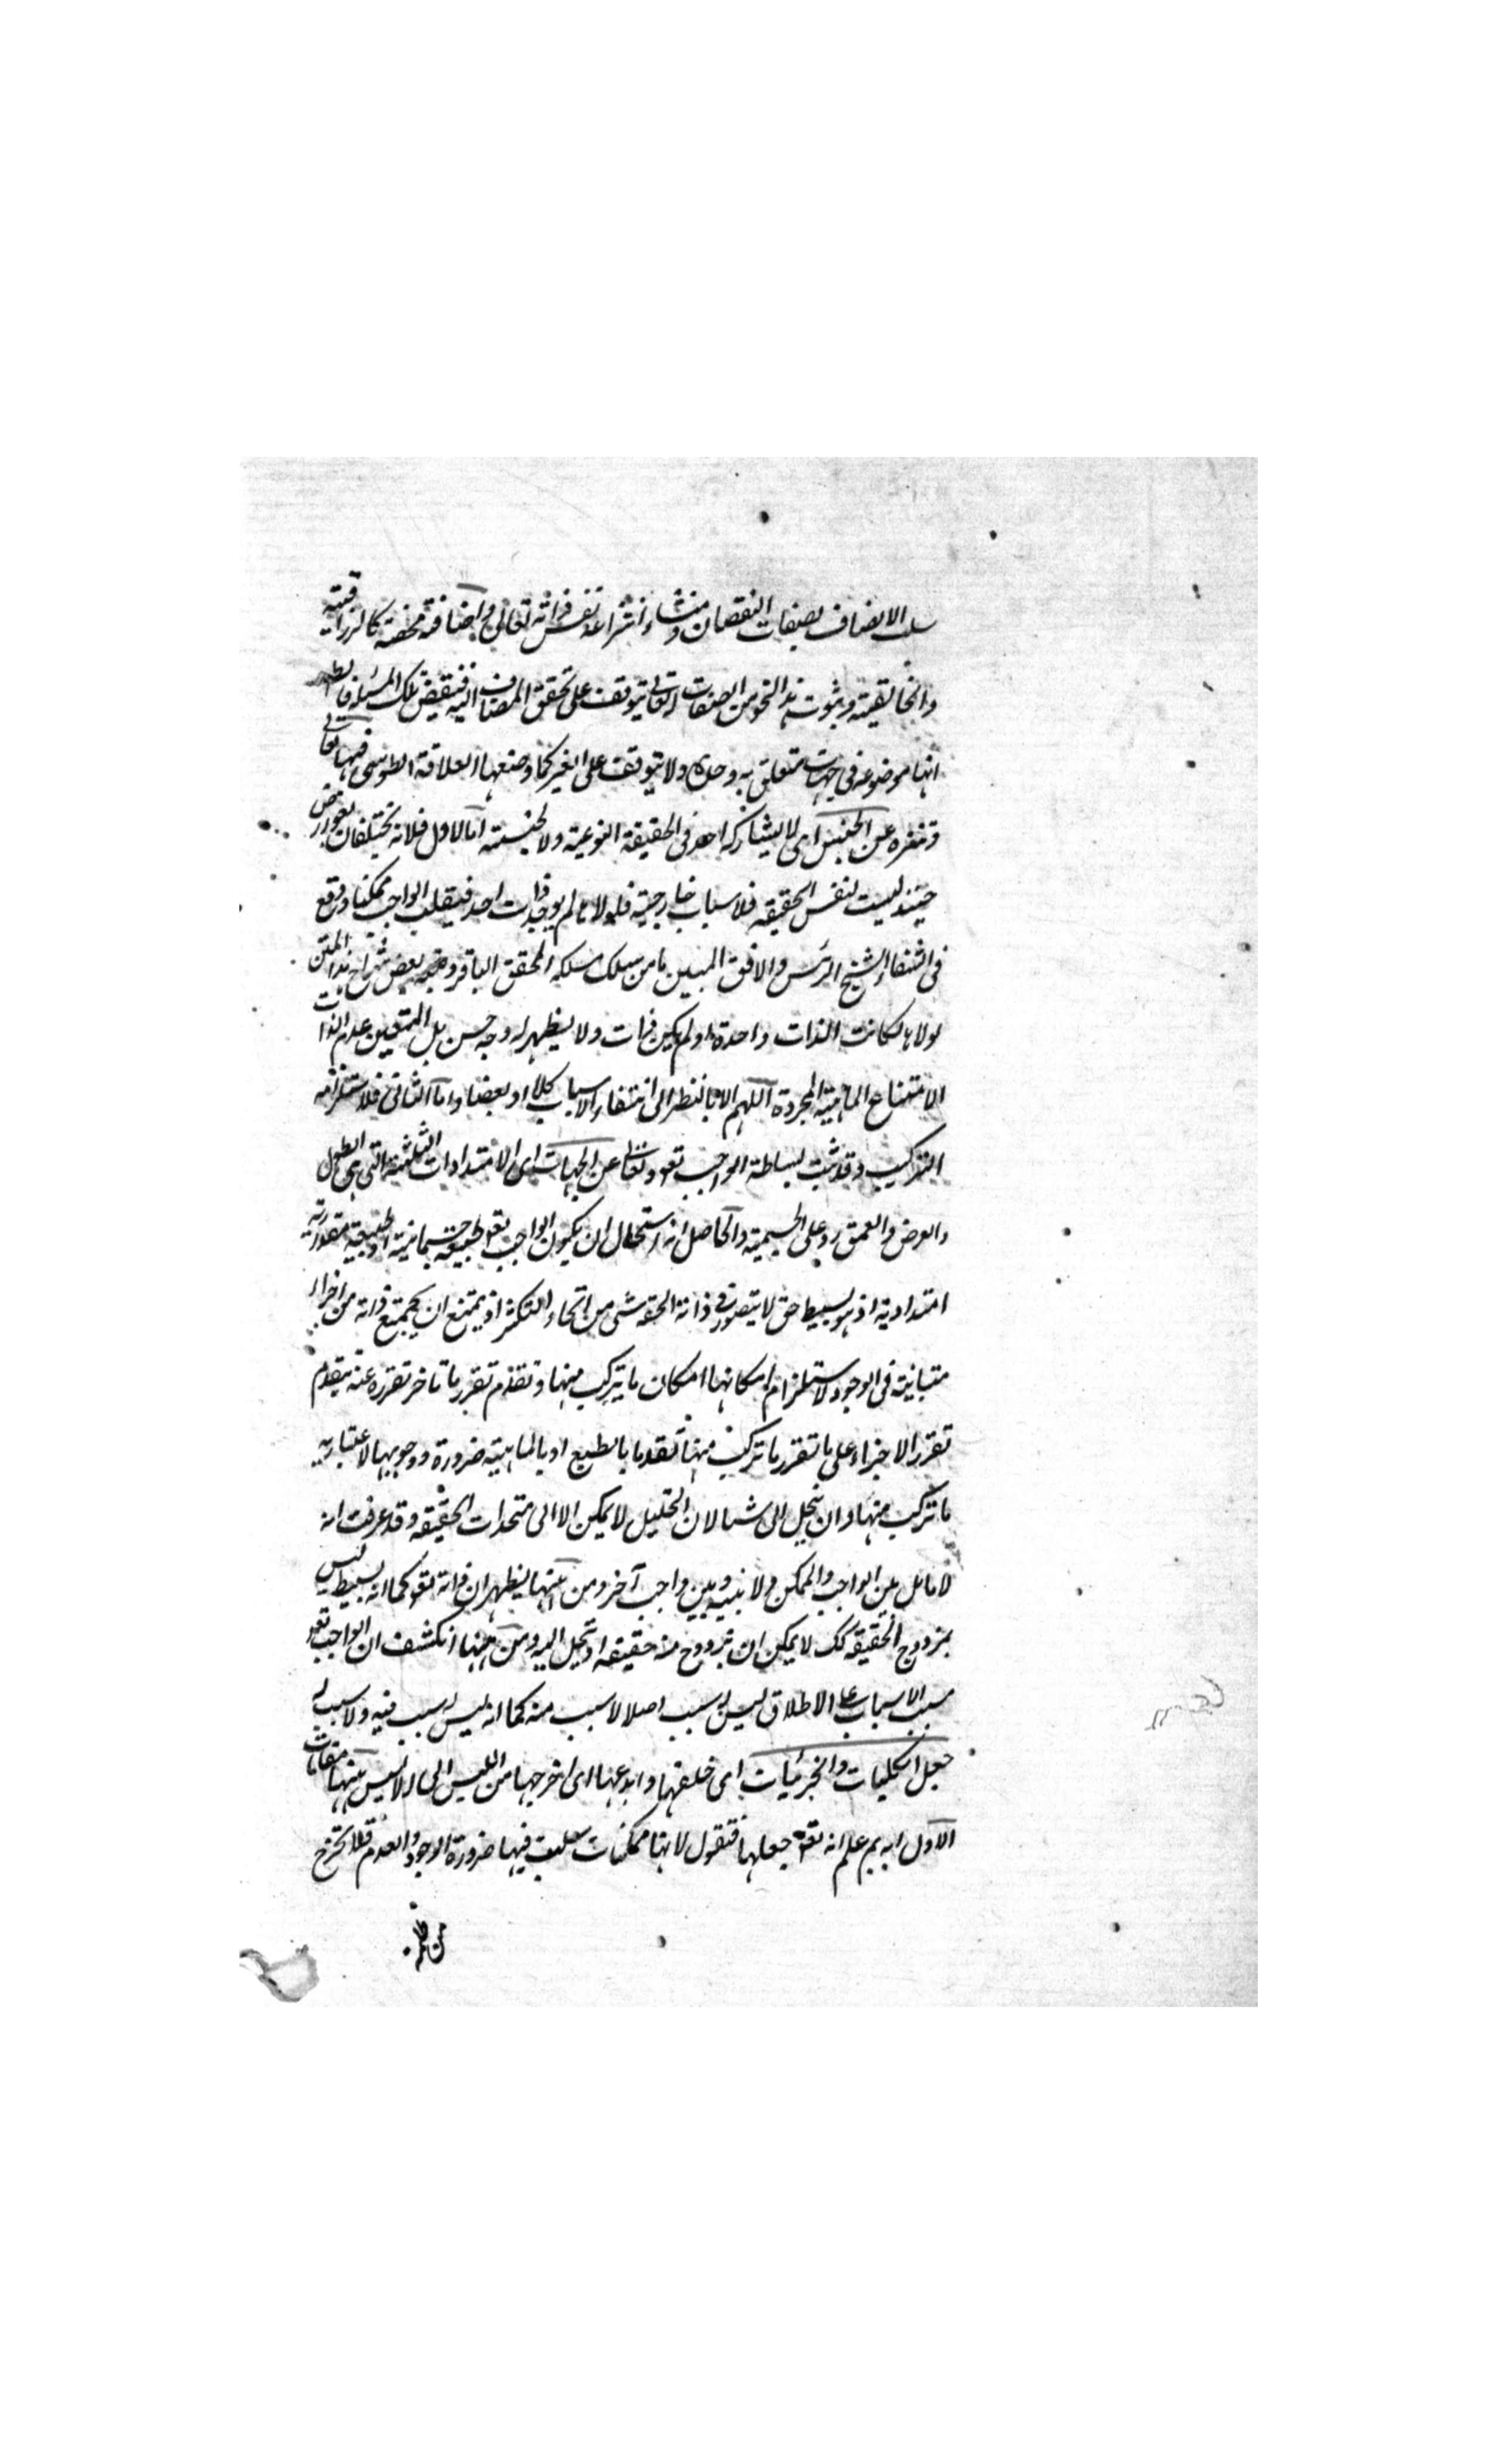 سلب الاتصاف بصفات النقصان ومنشاء انتزاعه نفس ذاته تعالى واضافة محضة كالرازقية
والخالقية وثبوت هذا النحو من الصفات له تعالى يتوقف على تحقق المضاف اليه فنقيض تلك
انها موضوعه فى جهات متعلق به وحده ولا يتوقف على الغير كما وضعها العلاقة الطوسى
وتنزه عن الجنس اى لا يشاركه احد فى الحقيقة النوعية ولا الجنسية اما الاول فلانه يختلفان بعوارض
حينئذ ليست لنفس الحقيقه فلاسباب خارجية فلولاها لم يوجد ذات احد فينقلب الواجب ممكنا ووقع
فى الشفاء للشيخ الرئيس والافق المبين ما من سلك مسلكه المحقق الباقر وتبعه بعض شراح هذا المتن
لولاها لكانت الذات واحدة او لم يكن ذات ولا يظهر له وجه حسن بل المتعين عدم الذات
لامتناع الماهية المجردة اللهم الا بالنظر الى انتفاء الاسباب كلا او بعضا واما الثانى فلاستلزامه
التركيب وقد ثبت بساطة الواجب تعو وتعالى عن الجهات اى الامتدادات الثلثة التى هى الطول
والعرض والعمق رد على الجسمية والحاصل انه استحال ان يكون الواجب تعو طبيعة جسمانية او طبيعة مقدارية
امتدادية اذ هو بسيط حق لا يتصور فى ذاته الحقه شى من انحاء التكثر اذ يمتنع ان يجتمع ذاته من اجزاء
متباينة فى الوجود لاستلزام امكانها امكان ما يتركب منها وتقدم تقرر ما تاخر تقرره عنه يتقدم
تقرر الاجزاء على ما تقرر ما تركب منها تقدما بالطبع او بالماهية ضرورة ووجوبها لاعتبارية
ما تركب منها وان ينحل الى شيا لان التحليل لا يمكن الا الى متحدات الحقيقه وقد عرفت انه
لا تماثل بين الواجب والممكن ولا بينه وبين واجب آخر ومن ههنا يظهر ان ذاته تعو كما انه بسيط ليس
بمزدوج الحقيقه كك لا يمكن ان يزدوج منه حقيقه او تنحل اليه ومن ههنا انكشف ان الواجب تعو
مسبب الاسباب على الاطلاق ليس له سبب اصلا لا سبب منه كما انه ليس له سبب فيه ولا سبب له
جعل الكليات والجزئيات اى خلقها وابدعها اى اخرجها من الليس الى الايس ههنا مقامات
الاول انه بم علم انه تعو جعلها فنقول لانها ممكنات سلبت فيها ضرورة الوجود والعدم فلا تخرج